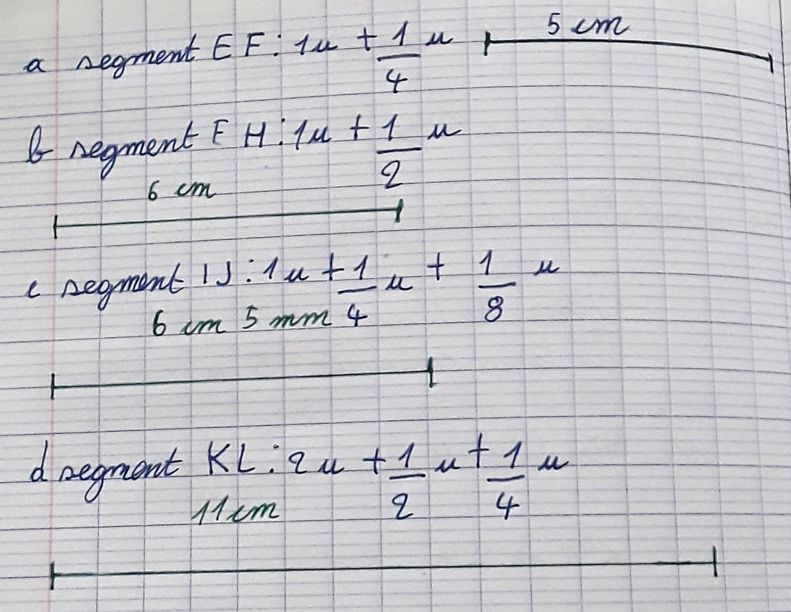 a segment EF : 1u + 1/4 u 5 cm
b segment FH : 1u + 1/2 u
6 cm
c segment IJ : 1u + 1/4 u + 1/8 u
6 cm 5 mm
d segment KL : 2u + 1/2 u + 1/4 u
11 cm